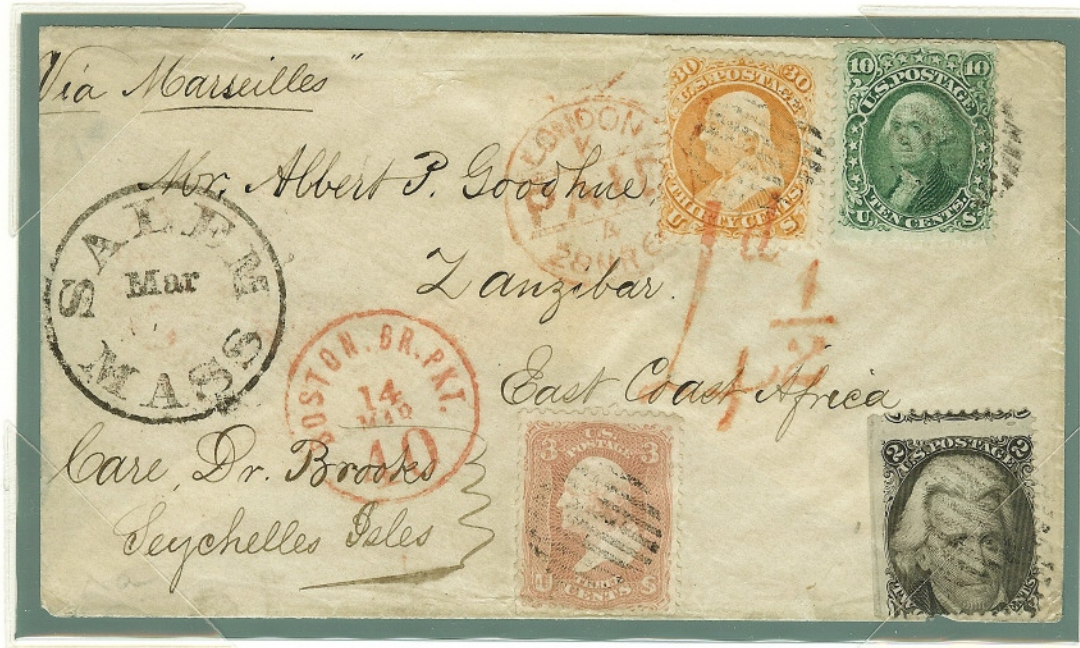 Via Marseilles"
30 U.S. POSTAGE 30
THIRTY CENTS
U S
10 U.S. POSTAGE 10
TEN CENTS
U. S
LONDON
PAID
4
Mr. Albert P. Goodhue,
Zanzibar.
East Coast Africa
SALEM
Mar
MASS
BOSTON. BR. PKT.
14
MAR
10
1d
Care, Dr. Brooks
Seychelles Isles
3 U.S. POSTAGE 3
THREE CENTS
U S
2 U.S. POSTAGE 2